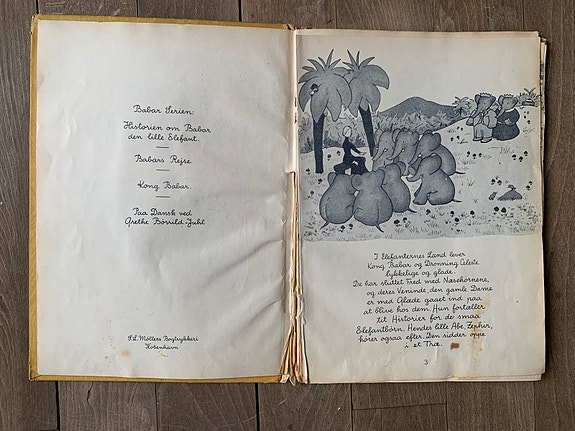 Babar Serien:
Historien om Babar
den lille Elefant.
Babars Rejse.
Kong Babar.
Paa Dansk ved
Grethe Börrild-Juhl
S.L. Möllers Bogtrykkeri
Köbenhavn
I Elefanternes Land lever
Kong Babar og Dronning Celeste
lykkelige og glade.
De har sluttet Fred med Næsehornene,
og deres Veninde, den gamle Dame
er med Glæde gaaet ind paa
at blive hos dem. Hun fortæller
tit Historier for de smaa
Elefantbörn. Hendes lille Abe, Zephir,
hörer ogsaa efter. Den sidder oppe
i et Træ.
3